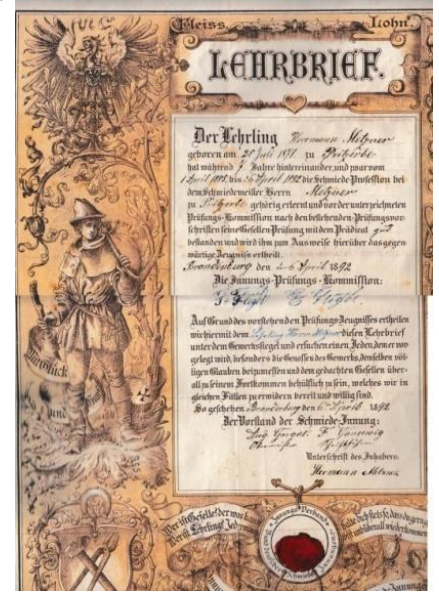 Fleiss. Lohn.
LEHRBRIEF.
Der Lehrling Herrmann Metzner
geboren am 21 Juli 1871 zu Pritzerbe
hat während Jahre hintereinander, und zwar vom
April bis April 1892 die Schmiede-Profession bei
dem Schmiedemeister Herrn Metzner
zu Pritzerbe gehörig erlernt und vor der unterzeichneten
Prüfungs-Kommission nach den bestehenden Prüfungsvor-
schriften seine Gesellen-Prüfung mit dem Prädikat gut
bestanden und wird ihm zum Ausweise hierüber das gegen-
wärtige Zeugniss ertheilt.
Brandenburg den 6 April 1892
Die Innungs-Prüfungs-Kommission:
Auf Grund des vorstehenden Prüfungs-Zeugnisses ertheilen
wir hiermit dem diesen Lehrbrief
unter dem Gewerkssiegel und ersuchen einen Jeden, dem er vor-
gelegt wird, besonders die Genossen des Gewerks, demselben völ-
ligen Glauben beizumessen und dem gedachten Gesellen über-
all zu seinem Fortkommen behülflich zu sein, welches wir in
gleichen Fällen zu erwidern bereit und willig sind.
So geschehen Brandenburg den 6. April 1892
Der Vorstand der Schmiede-Innung:
Unterschrift des Inhabers:
Hermann Metzner
Glück
und
Wer ist Geselle? der was kann
Wer ist Lehrling? Jed
Innungs-Verband
Halte dich stets so, dass du gern
und überall wiederkommen